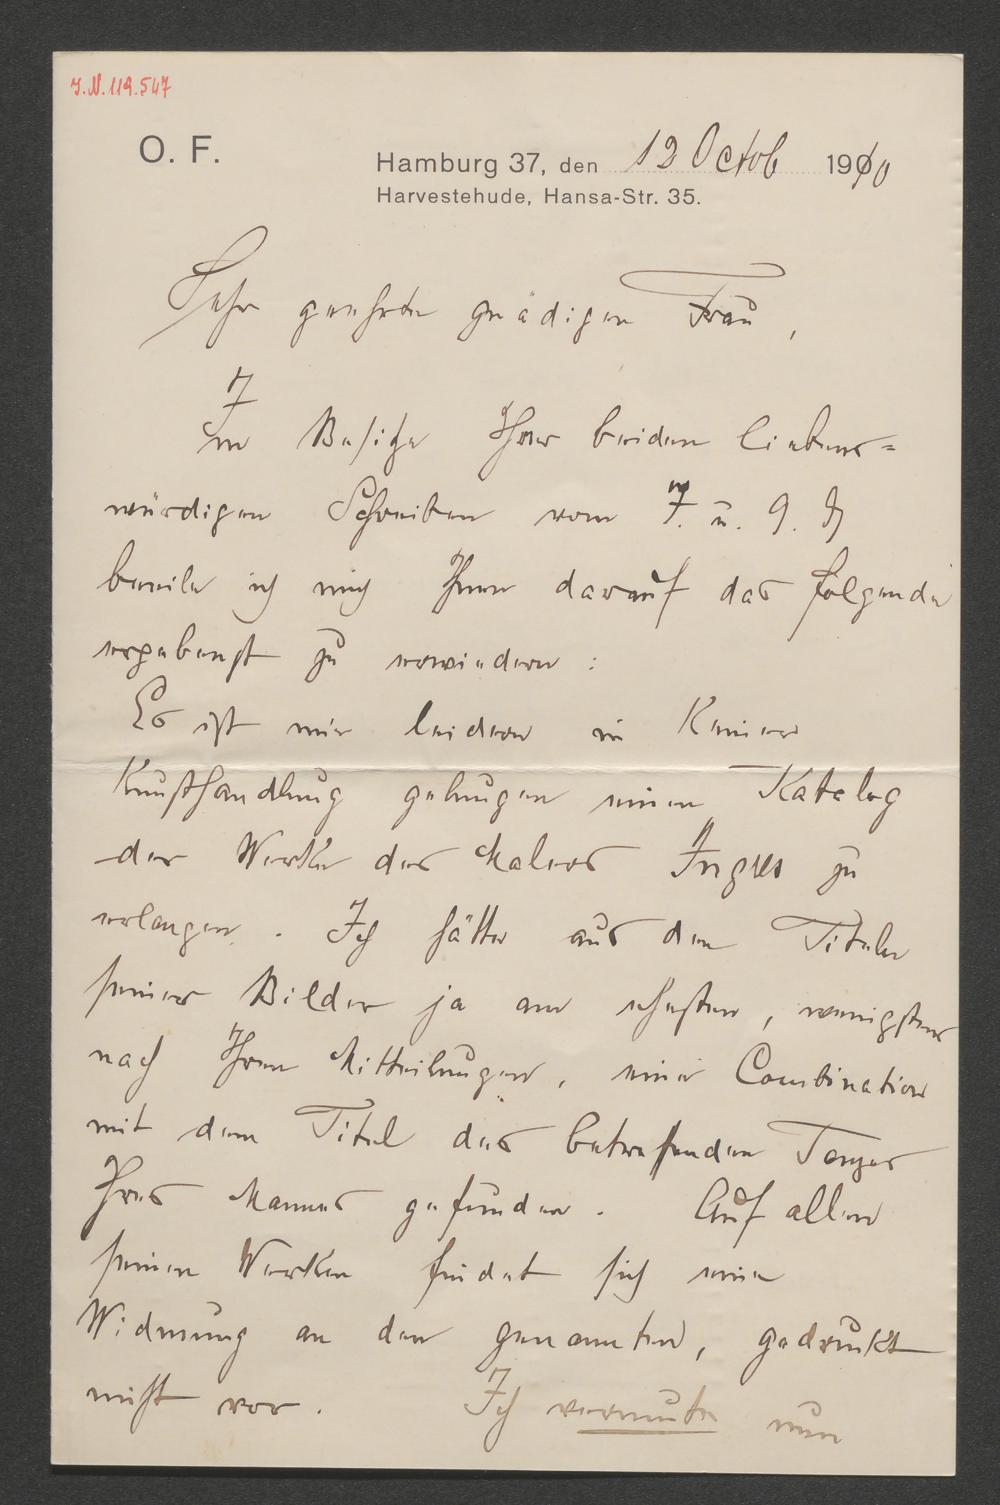 J.N. 119.547
O. F.
Hamburg 37, den 12 Octob 1910
Harvestehude, Hansa-Str. 35.
Sehr geehrte gnädigen Frau,
Im Besitze Ihrer beiden liebens=
würdigen Schreiben vom 7. u. 9. d
beeile ich mich Ihnen darauf das folgende
ergebenst zu erwiedern:
Es ist mir leider in keiner
Kunsthandlung gelungen einen Katalog
der Werke des Malers Ingres zu
erlangen. Ich hätte aus den Titeln
seiner Bilder ja am ehesten, wenigstens
nach Ihren Mitteilungen, eine Combination
mit dem Titel des betreffenden
Ihres Mannes gefunden. Auf allen
seinen Werken findet sich eine
Widmung an den genannten, gedruckt
nicht vor. Ich vermute nun